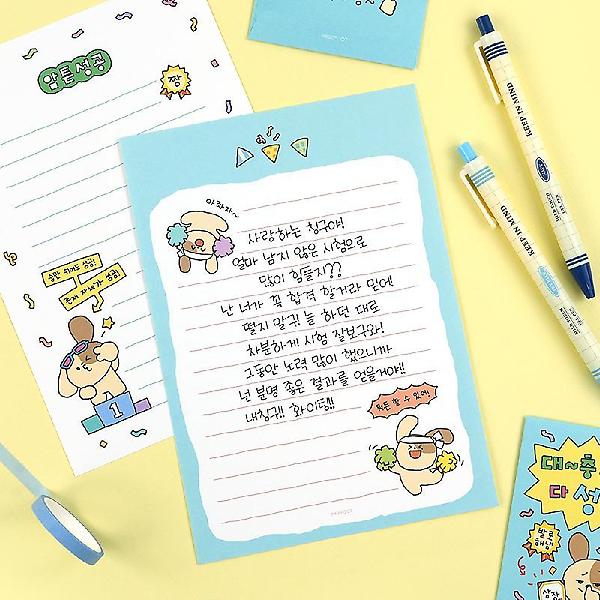 암튼성공
짱
아자자~
사랑하는 칭구야!
얼마 남지 않은 시험으로
많이 힘들지??
난 너가 꼭 합격 할거라 믿어!
떨지 말귀 늘 하던 대로
차분하게 시험 잘보구와!
그동안 노력 많이 했으니까
넌 분명 좋은 결과를 얻을거야!!
내칭구!! 화이팅!!
뭐든 할 수 있어!
1
KEEP IN MIND
KEEP IN MIND
대~충
다 성